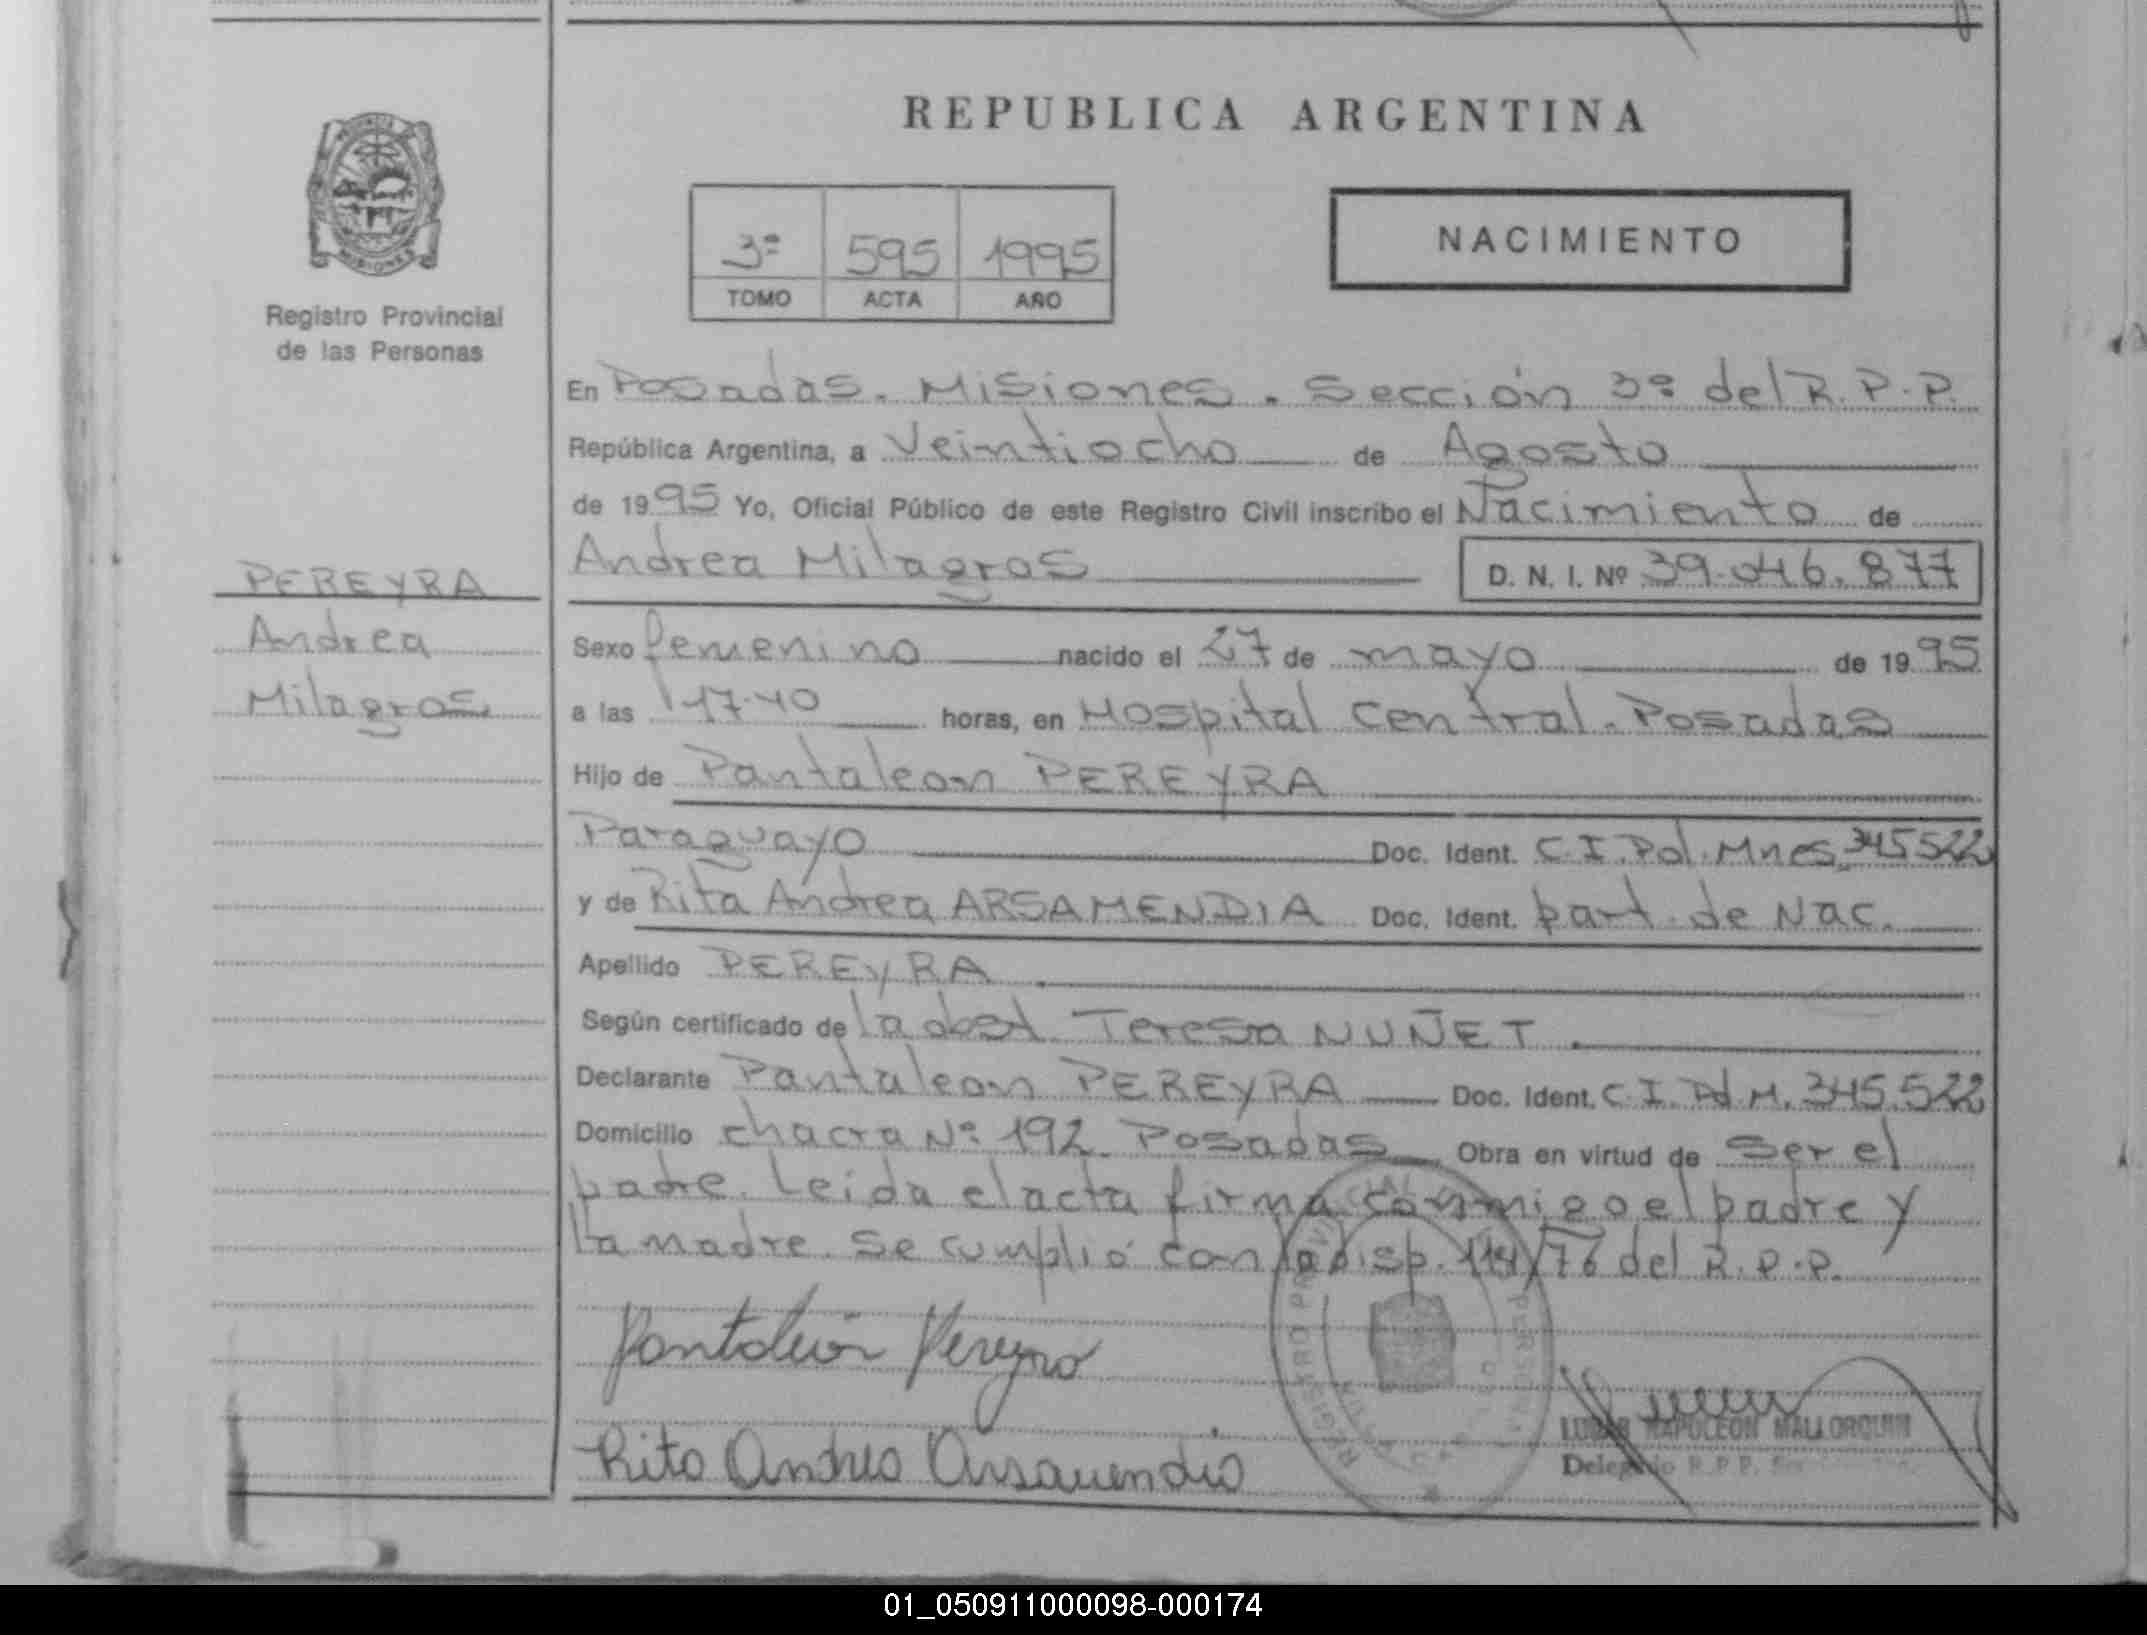 REPUBLICA ARGENTINA
MISIONES
Registro Provincial
de las Personas
3ª 595 1995
TOMO ACTA AÑO
NACIMIENTO
En Posadas. Misiones. Sección 3ª del R.P.P.
República Argentina, a Veintiocho de Agosto
de 1995 Yo, Oficial Público de este Registro Civil inscribo el Nacimiento de
Andrea Milagros D. N. I. Nº 39.046.877
PEREYRA
Andrea
Milagros
Sexo femenino nacido el 27 de mayo de 1995
a las 17.40 horas, en Hospital Central. Posadas
Hijo de Pantaleon PEREYRA
Paraguayo Doc. Ident. C.I. Pol. Mnes. 345522
y de Rita Andrea ARSAMENDIA Doc. Ident. part. de Nac.
Apellido PEREYRA
Según certificado de la obst. Teresa NUÑET.
Declarante Pantaleon PEREYRA Doc. Ident. C.I. Pol. M. 345.522
Domicilio chacra Nº 192. Posadas Obra en virtud de ser el
padre. Leida el acta firma conmigo el padre y
la madre. Se cumplió con la Disp. 114/76 del R.P.P.
Pantaleón Pereyra
Rita Andrea Arsamendia
NAPOLEON MALLORQUIN
Delegado R.P.P.
01_050911000098-000174